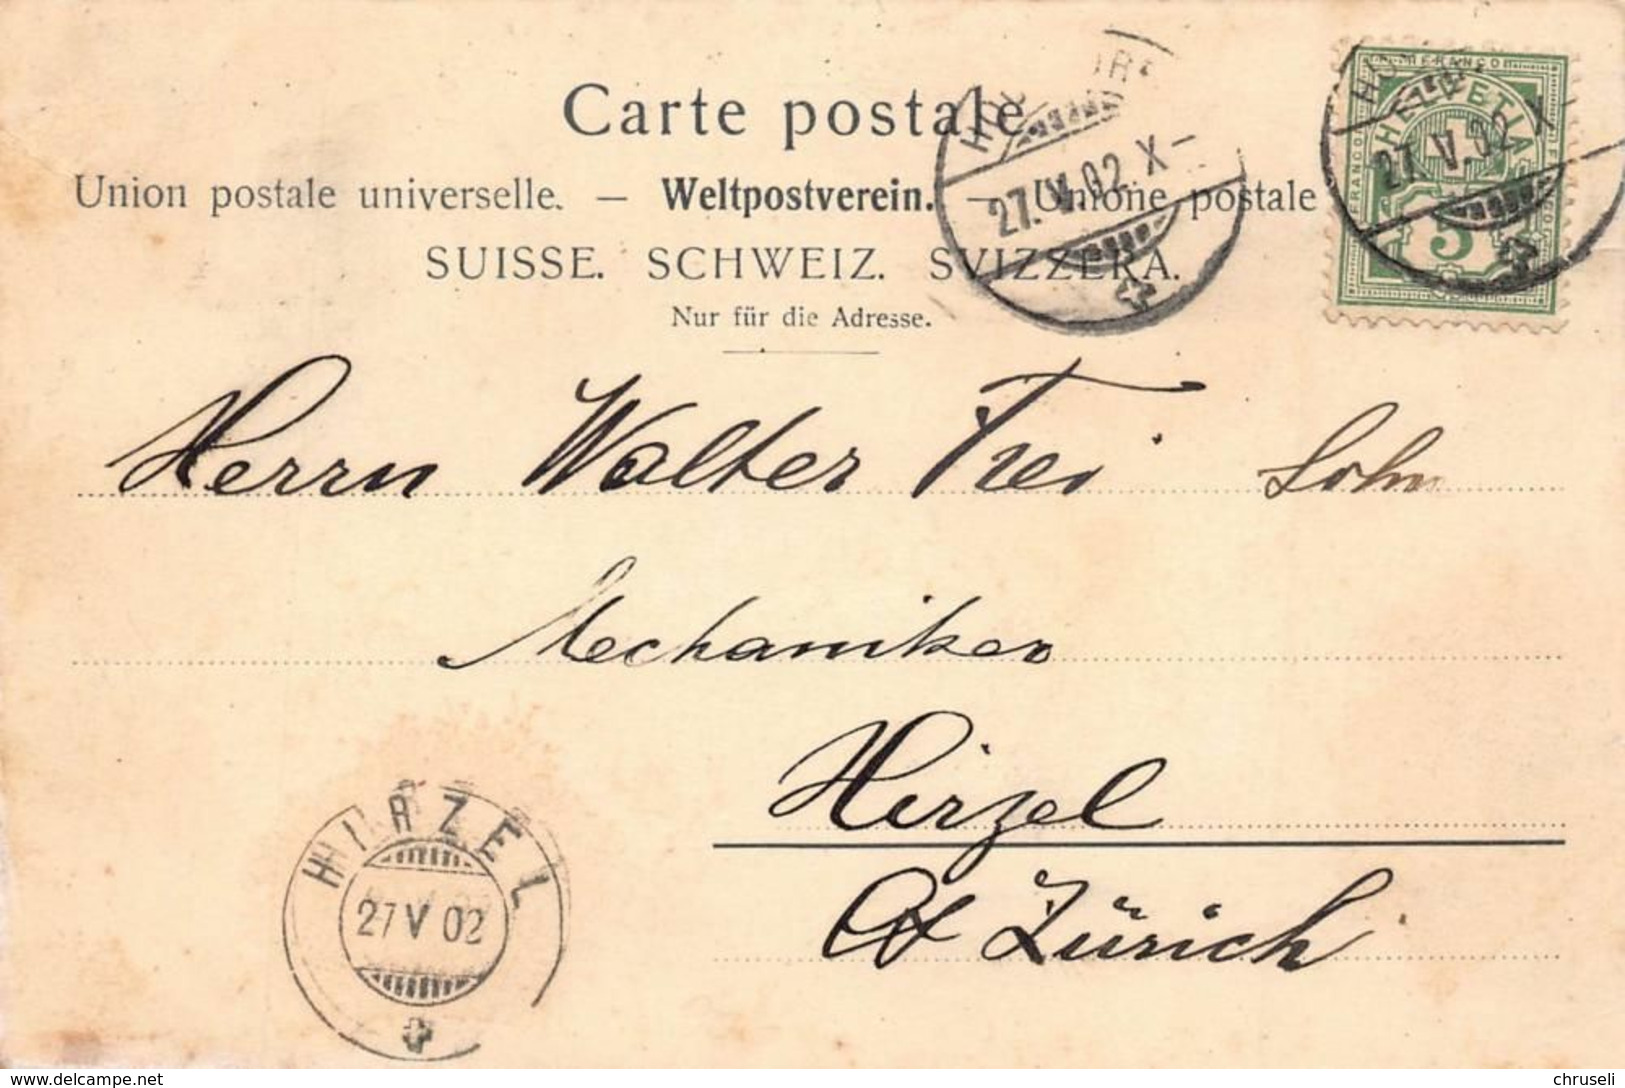 Carte postale
Union postale universelle. — Weltpostverein. — Unione postale
SUISSE. SCHWEIZ. SVIZZERA.
Nur für die Adresse.
27. V. 02. X –
FRANCO
HELVETIA
FRANCO
5
27. V. 02. X –
Herrn Walter Frei Sohn
Mechaniker
Hirzel
Ct Zürich
HIRZEL
27 V 02
www.delcampe.net
chruseli